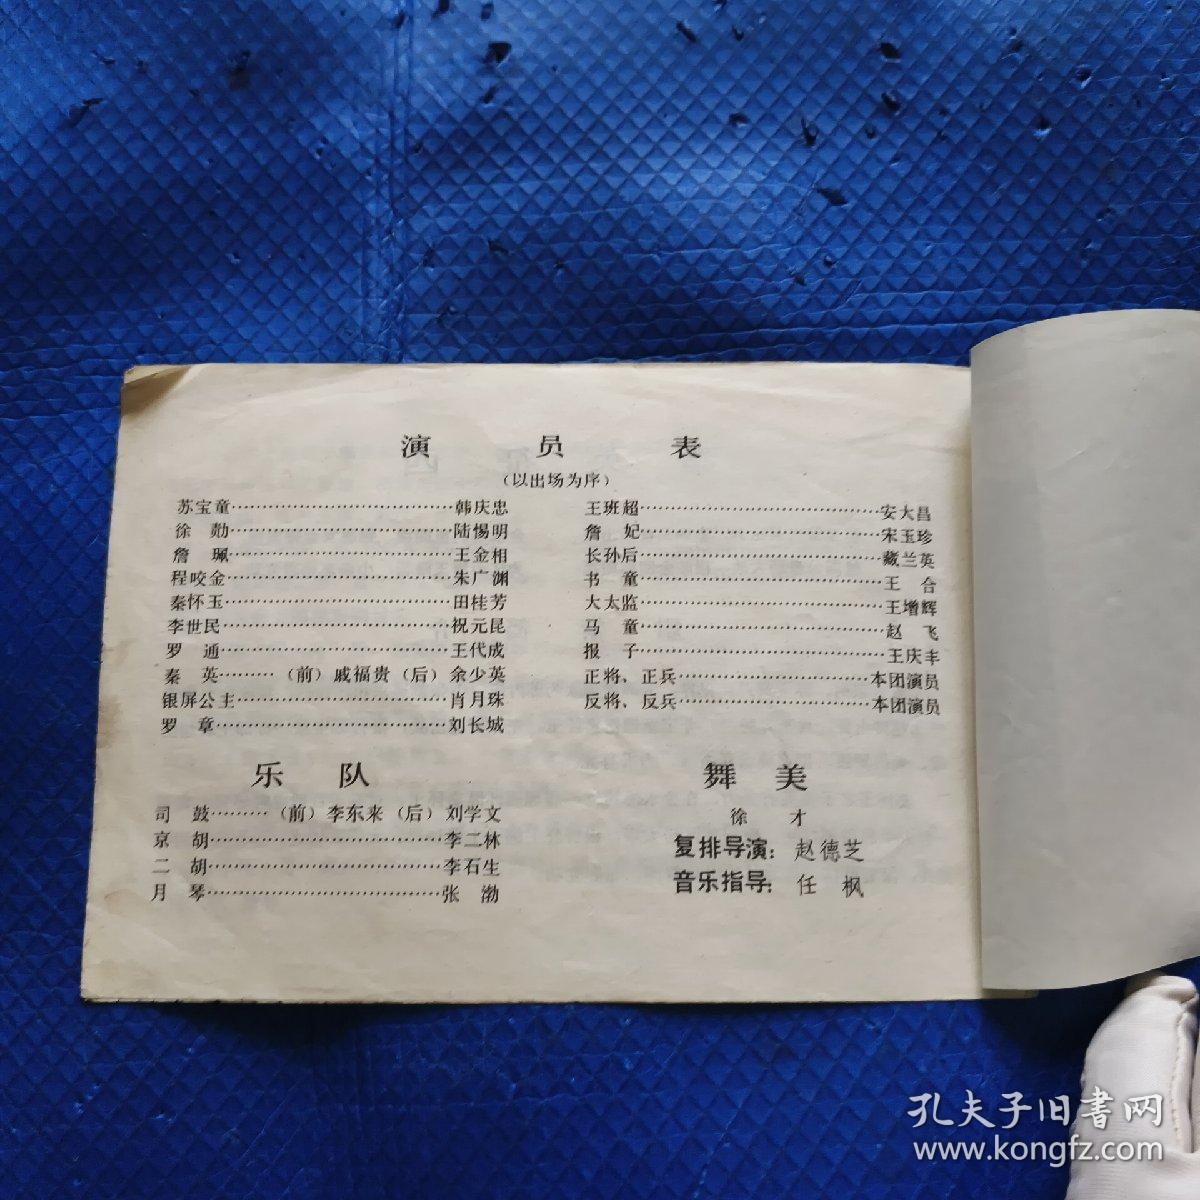 演员表
（以出场为序）
苏宝童……………………………韩庆忠
徐勣……………………………陆惕明
詹珮……………………………王金相
程咬金……………………………朱广渊
秦怀玉……………………………田桂芳
李世民……………………………祝元昆
罗通……………………………王代成
秦英………（前）戚福贵（后）余少英
银屏公主……………………………肖月珠
罗章……………………………刘长城
王班超……………………………安大昌
詹妃……………………………宋玉珍
长孙后……………………………藏兰英
书童……………………………王合
大太监……………………………王增辉
马童……………………………赵飞
报子……………………………王庆丰
正将、正兵……………………………本团演员
反将、反兵……………………………本团演员
乐队
司鼓………（前）李东来（后）刘学文
京胡……………………………李二林
二胡……………………………李石生
月琴……………………………张渤
舞美
徐才
复排导演：赵德芝
音乐指导：任枫
孔夫子旧书网
www.kongfz.com